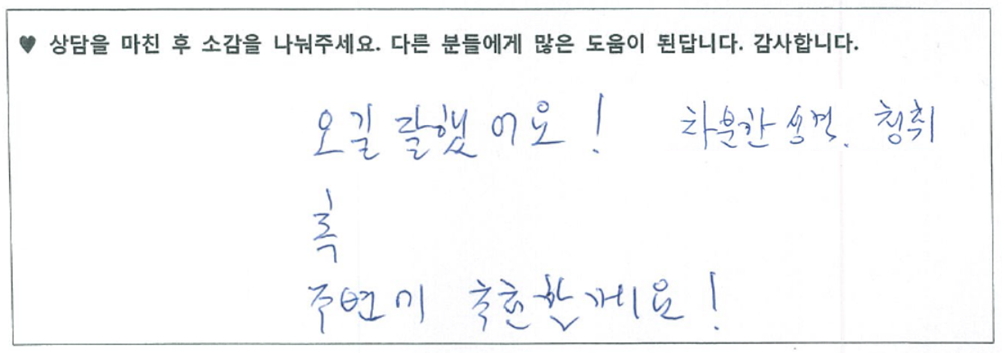 ♥ 상담을 마친 후 소감을 나눠주세요. 다른 분들에게 많은 도움이 된답니다. 감사합니다.
오길 잘했어요! 차분한 성격. 청취
혹
주변에 추천할께요!